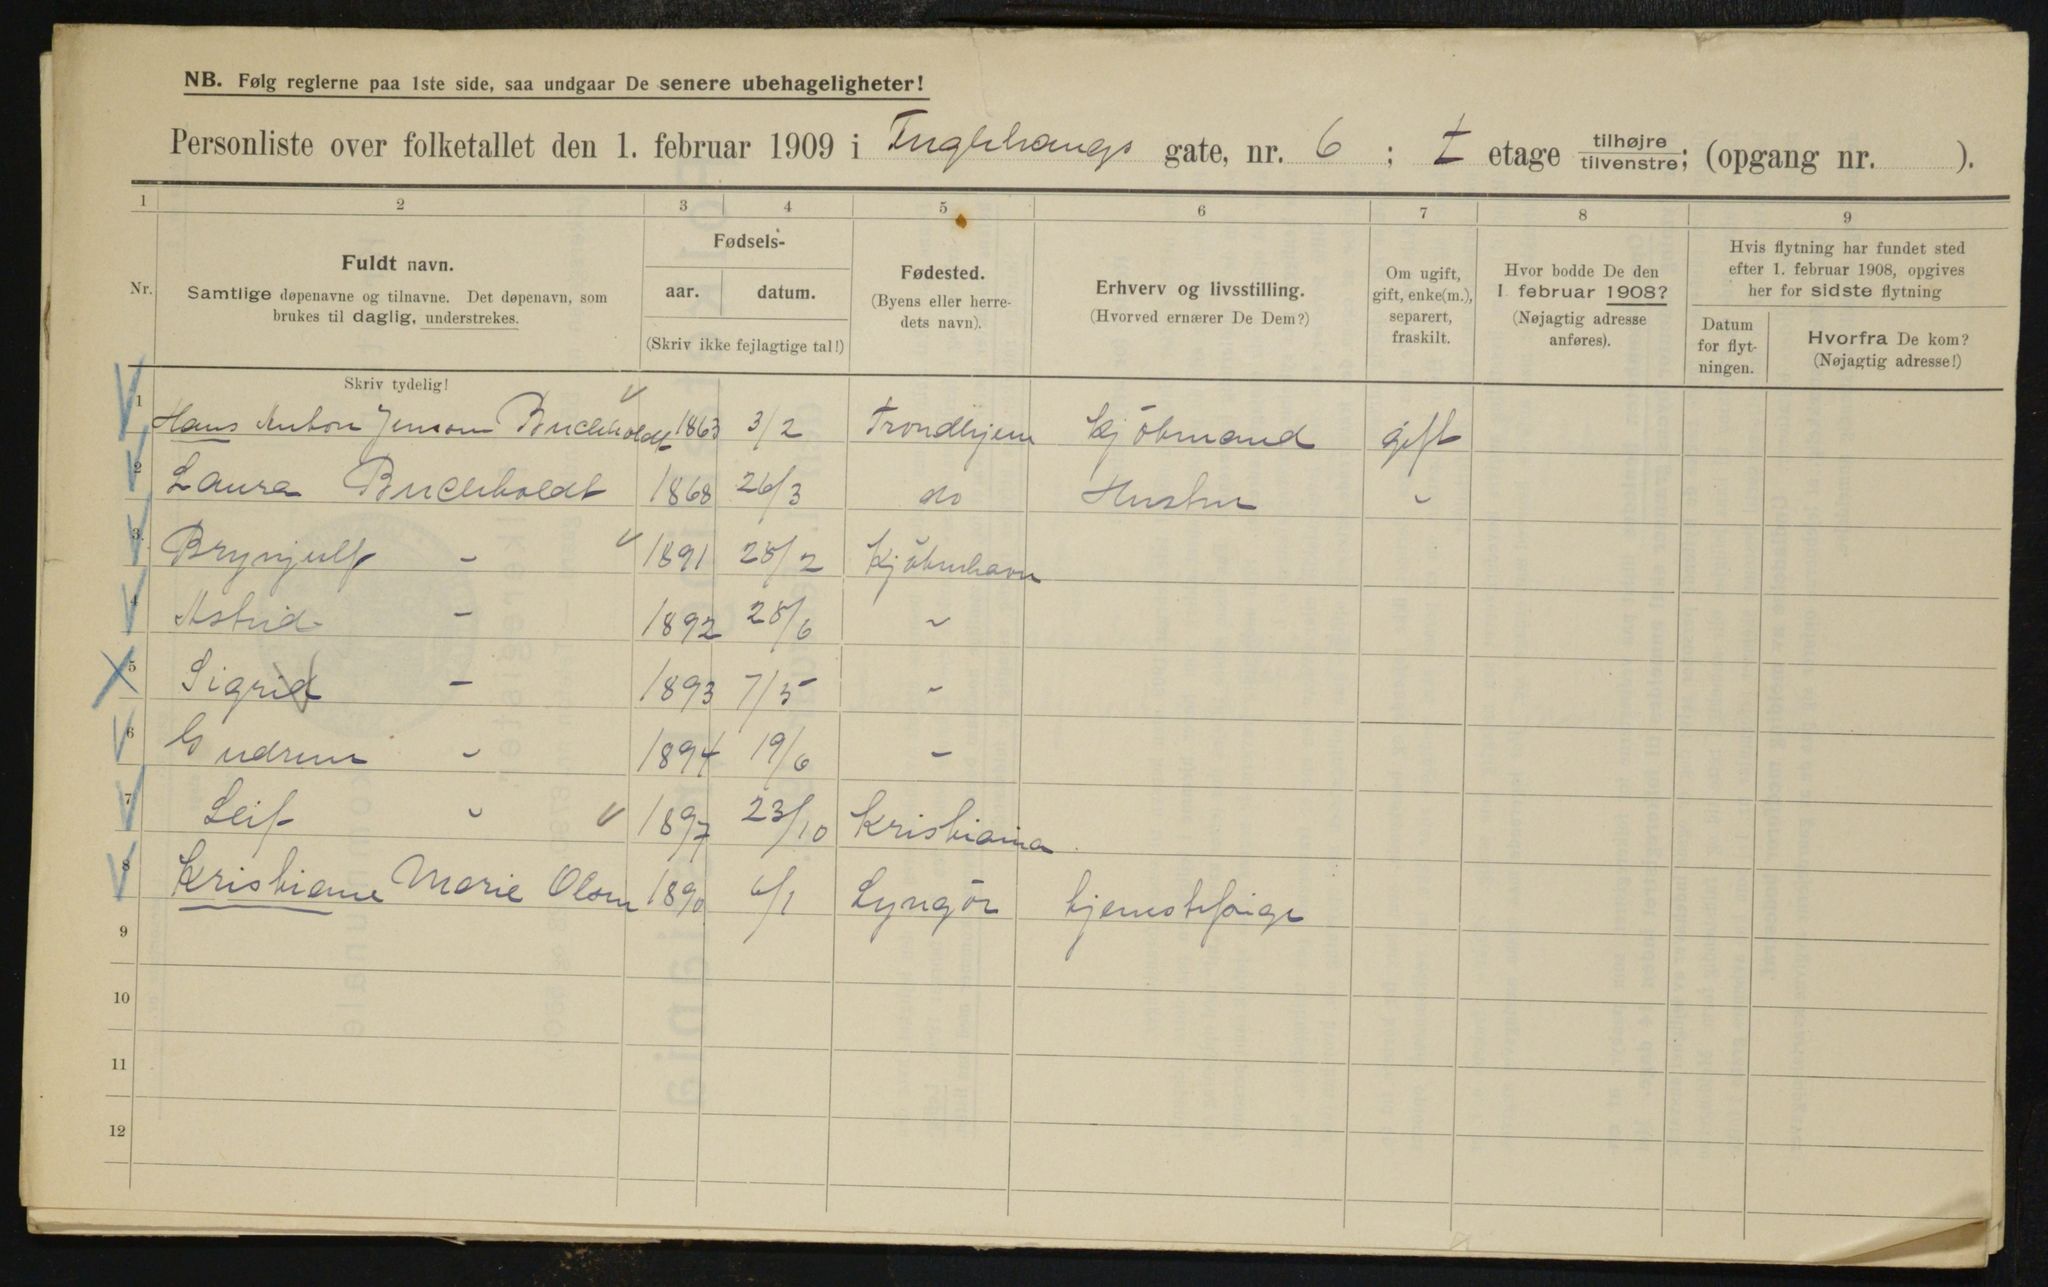 NB. Følg reglerne paa 1ste side, saa undgaar De senere ubehageligheter!
Personliste over folketallet den 1. februar 1909 i Fuglehaugs gate, nr. 6 ; I etage tilhøjre/tilvenstre; (opgang nr. ).
1 2 3 4 5 6 7 8 9
Nr.
Fuldt navn.
Samtlige døpenavne og tilnavne. Det døpenavn, som
brukes til daglig, understrekes.
Skriv tydelig!
Fødsels-
aar. datum.
(Skriv ikke fejlagtige tal!)
Fødested.
(Byens eller herre-
dets navn).
Erhverv og livsstilling.
(Hvorved ernærer De Dem?)
Om ugift,
gift, enke(m.),
separert,
fraskilt.
Hvor bodde De den
1. februar 1908?
(Nøjagtig adresse
anføres).
Hvis flytning har fundet sted
efter 1. februar 1908, opgives
her for sidste flytning
Datum
for flyt-
ningen.
Hvorfra De kom?
(Nøjagtig adresse!)
1 Hans Anton Jenson Buchholdt 1863 3/2 Trondhjem Kjöbmand gift
2 Laura Buchholdt 1868 26/3 do Hustru "
3 Brynjulf - 1891 28/2 Kjöbenhavn
4 Astrid - 1892 28/6 "
5 Sigrid - 1893 7/5 "
6 Gudrun " 1894 19/6 -
7 Leif " 1897 23/10 Kristiania
8 Kristiane Marie Olsen 1890 6/1 Lyngör tjenestepige
9
10
11
12